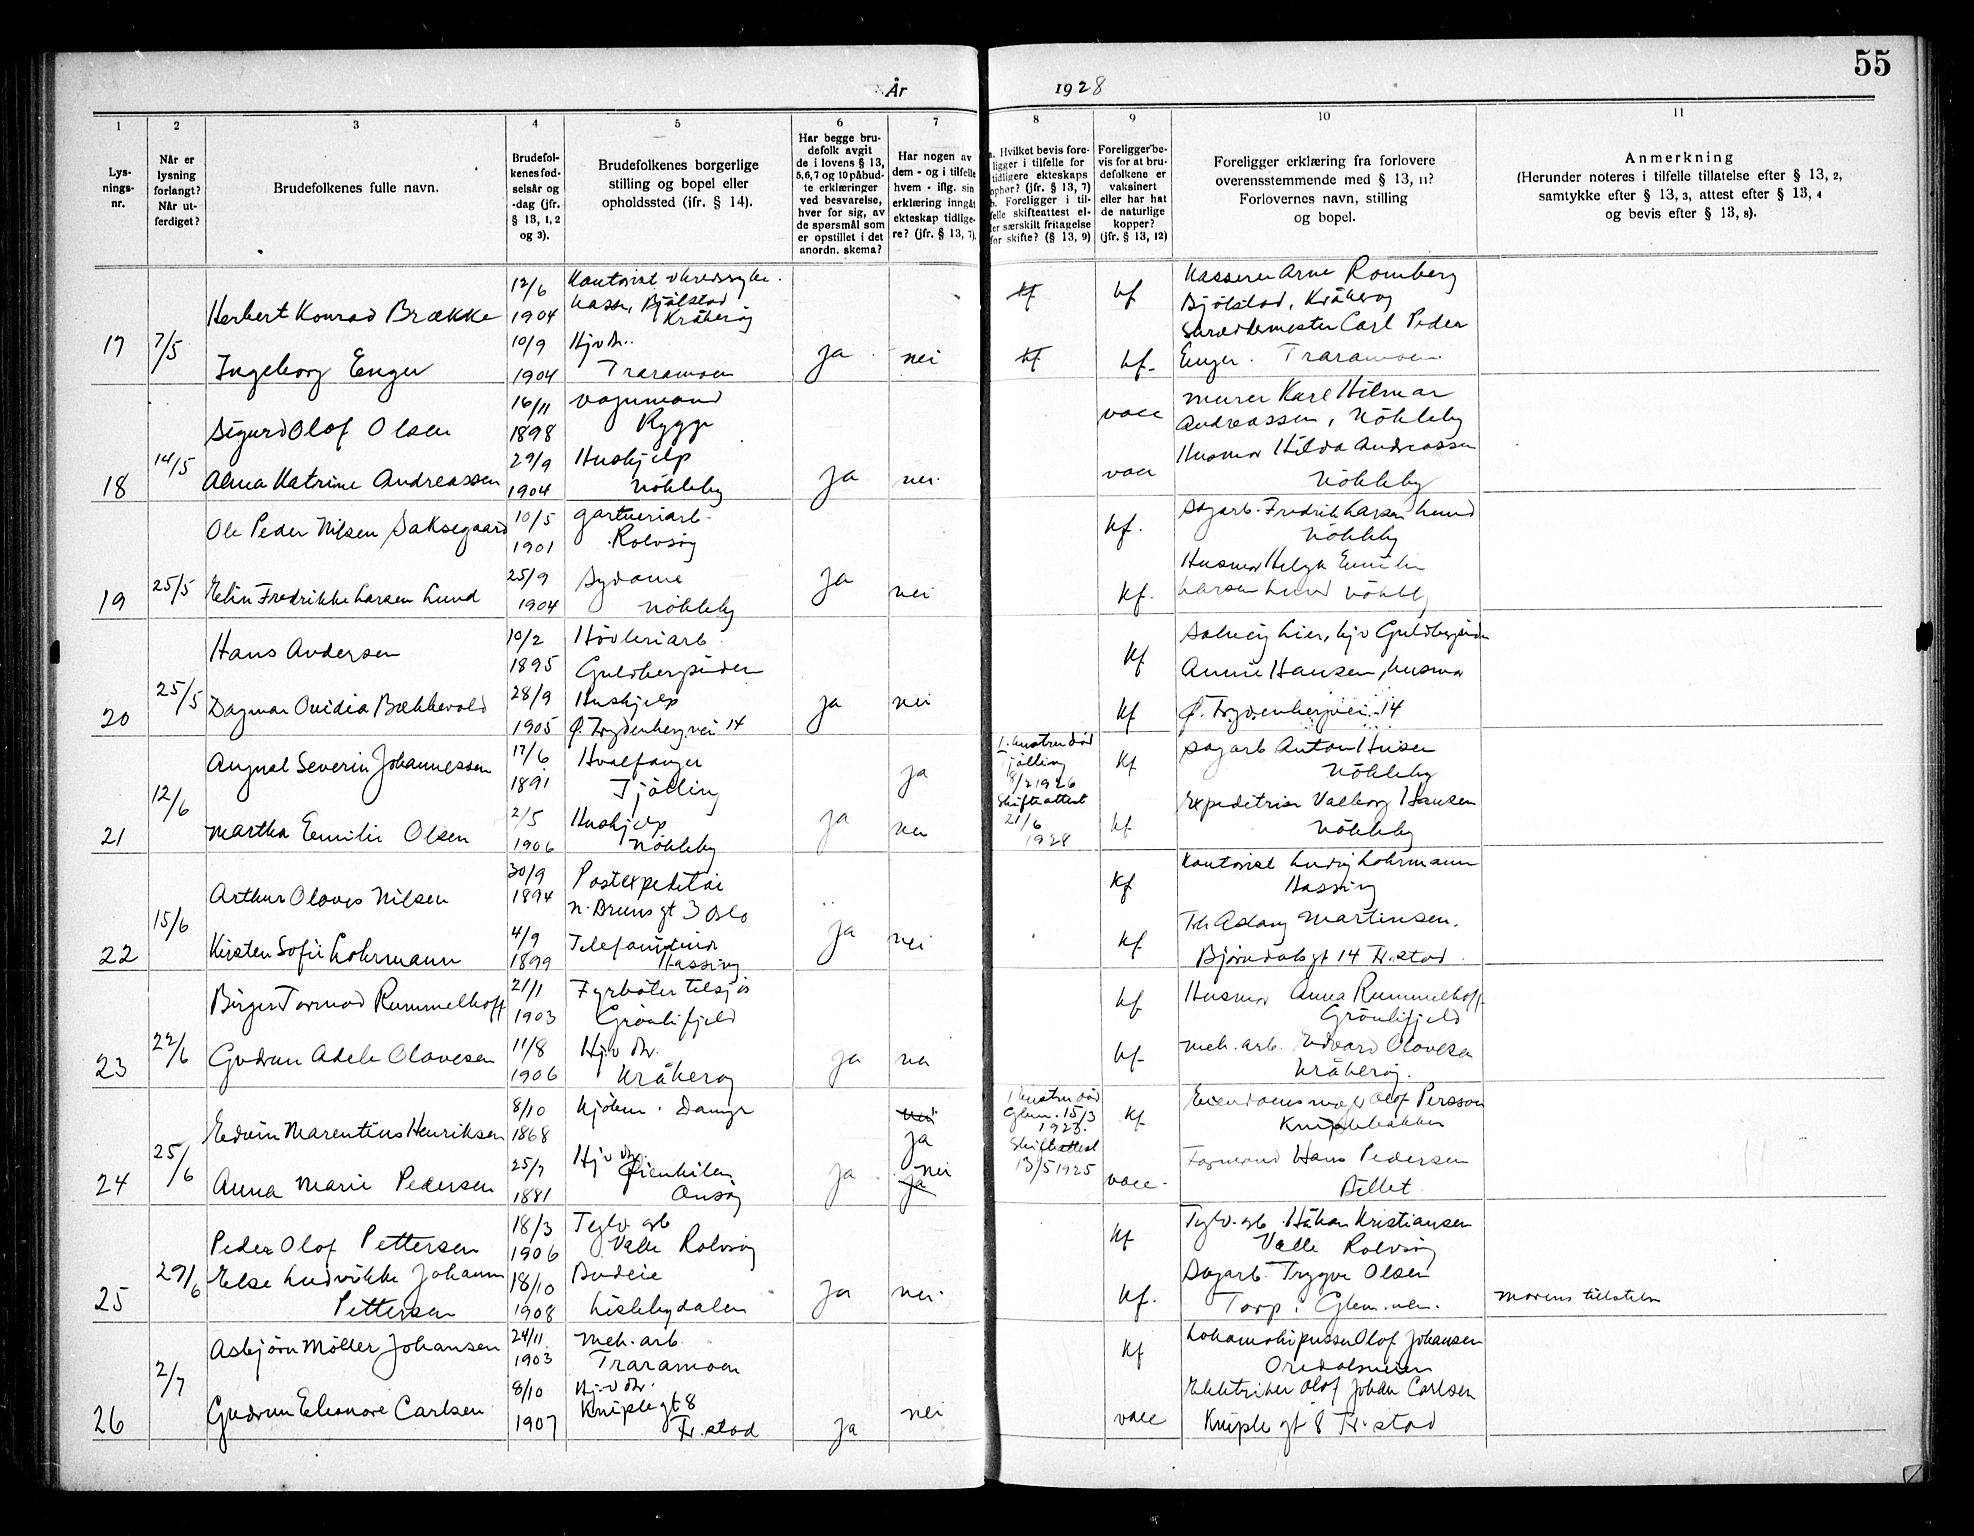 55
År 1928
1 2 3 4 5 6 7 8 9 10 11
Lys-
nings-
nr.
Når er
lysning
forlangt?
Når ut-
ferdiget?
Brudefolkenes fulle navn.
Brudefol-
kenes fød-
selsår og
-dag (jfr.
§ 13, 1, 2
og 3).
Brudefolkenes borgerlige
stilling og bopel eller
opholdssted (ifr. § 14).
Har begge bru-
defolk avgit
de i lovens § 13,
5, 6, 7 og 10 påbud-
te erklæringer
ved besvarelse,
hver for sig, av
de spørsmål som
er opstillet i det
anordn. skema?
Har nogen av
dem - og i tilfelle
hvem - iflg. sin
erklæring inngåt
ekteskap tidlige-
re? (jfr. § 13, 7).
a. Hvilket bevis fore-
ligger i tilfelle for
tidligere ekteskaps
ophør? (jfr. § 13, 7)
b. Foreligger i til-
felle skifteattest el-
ler særskilt fritagelse
for skifte? (§ 13, 9)
Foreligger be-
vis for at bru-
defolkene er
vaksinert
eller har hat
de naturlige
kopper?
(jfr. § 13, 12)
Foreligger erklæring fra forlovere
overensstemmende med § 13, 11?
Forlovernes navn, stilling
og bopel.
Anmerkning
(Herunder noteres i tilfelle tillatelse efter § 13, 2,
samtykke efter § 13, 3, attest efter § 13, 4
og bevis efter § 13, 8).
17 7/5
Herbert Konrad Brække 12/6 1904 Kontorist
Kasse, Bjölstad
Kråkeröy
kf kf Kasserer Arne Romberg
Bjölstad, Kråkeröy
Ingeborg Enger 10/9 1904 Hjv dr.
Traramoen
Ja nei kf kf Skræddermester Carl Peder
Enger. Traramoen
18 14/5
Sigurd Olof Olsen 16/11 1898 vognmand
Rygge
vacc murer Karl Hilmar
Andreassen, Nökleby
Alma Katrine Andreassen 29/9 1904 Hushjelp
Nökleby
Ja nei vacc Husmor Hilda Andreassen
Nökleby
19 25/5
Ole Peder Nilsen Saksegaard 10/5 1901 gartneriarb.
Rolvsöy
kf. Sagarb. Fredrik Larsen Lund
Nökleby
Elin Fredrikke Larsen Lund 25/9 1904 Sydame
Nökleby
Ja nei kf. Husmor Helga Emilie
Larsen Lund Nökleby
20 25/5
Hans Andersen 10/2 1895 Hövleriarb
kf Solveig Lier, hjv
Dagmar Ovidia Bækkevold 28/9 1905 Hushjelp
14
Ja nei kf Annie Hansen, husmor
14
21 12/6
August Severin Johannessen 17/6 1891 Hvalfanger
Tjölling
ja 1. hustru död
Tjölling
8/2 1926
Skifteattest
21/6
1928
kf Sagarb Anton
Nökleby
Martha Emilie Olsen 2/5 1906 Hushjelp
Nökleby
Ja nei kf Expeditrise Valborg Hansen
Nökleby
22 15/6
Arthur Olaves Nilsen 30/9 1894 Postexpeditör
N. Bruns gt 3 Oslo
kf Kontorist Ludvig Lohrmann
Hassing
Kirsten Sofie Lohrmann 4/9 1899
Hassing
Ja nei kf Frk Aslaug Martinsen.
Björndals gt 14 Fr.stad
23 22/6
Birger Tormod Rummelhoff 21/1 1903 Fyrböter tilsjös
Grönlifjeld
kf Husmor Anna Rummelhoff
Grönlifjeld
Gudrun Adele Olavesen 11/8 1906 Hjv dr.
Kråkeröy
Ja nei kf mek. arb. Edvard Olavesen
Kråkeröy.
24 25/6
Edvin Marentius Henriksen 8/10 1868 Kjöbm.
nei
ja 1 hustru död
Glem. 15/3
1923.
Skifteattest
13/5 1925
kf Olof Persson
Anna Marie Pedersen 25/7 1881 Hjv dr.
Onsöy
Ja nei
ja vacc. Formand Hans Pedersen
Billet
25 29/6
Peder Olof Pettersen 18/3 1906 Teglv. arb
Valle Rolvsöy
kf Teglv. arb. Håkon Kristiansen
Valle Rolvsöy
Else Ludvikke Johanne
Pettersen 18/10 1908 Budeie
Lislebydalen
Ja nei. kf. Sagarb. Trygve Olsen
Torp i Glem.
morens tillatelse
26 2/7
Asbjörn Möller Johansen 24/11 1903 mek. arb.
Traramoen
kf Lokomotivpusser Olof Johansen
Oredalsveien
Gudrun Eleonore Carlsen 8/10 1907 Hjv dr.
Kniple gt 8
Fr.stad
Ja nei vacc Elektriker Olof Johan Carlsen
Kniple gt 8 Fr.stad